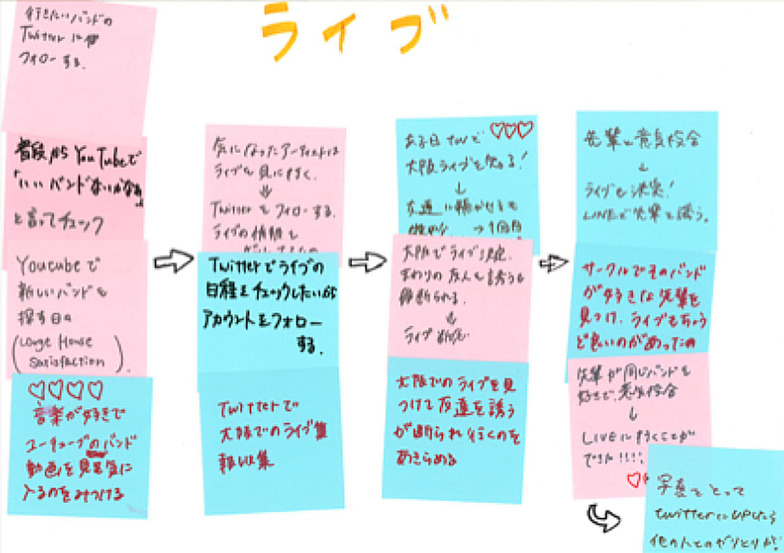 ライブ
行きたいバンドの
Twitterに
フォローする.
普段からYouTubeで
「いいバンドないかなぁ」
と言ってチェック
Youtubeで
新しいバンドを
探す日々
(Satisfaction)
♡♡♡♡
音楽が好きで
ユーチューブのバンド
動画を見て気に
入るのをみつける
気になったアーティストは
ライブを見に行く.
↓
Twitterもフォローする.
ライブの情報も
Twitterでライブの
日程をチェックしたいから
アカウントをフォロー
する.
Twitterで
大阪でのライブ
♡♡♡
ある日TWで
大阪ライブを知る!
↓
友達に
→1回目
大阪でライブ決定.
まわりの友人も誘うも
断られる.
↓
ライブ断念
大阪でのライブを見
つけて友達を誘う
が断られ行くのを
あきらめる
先輩と意気投合
↓
ライブも決定!
LINEで先輩を誘う.
サークルでそのバンド
が好きな先輩を
見つけ、ライブもちょう
ど良いのがあったの
先輩が同じバンドを
好きで、意気投合
↓
LIVEに行くことが
できた!!!!
写真をとって
twitterにUPしたら
他の人とのやりとりが.